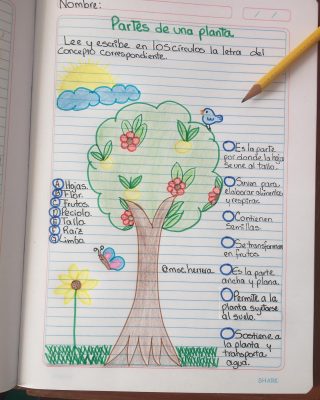 Nombre:
Partes de una planta
Lee y escribe en los círculos la letra del
concepto correspondiente.
Hojas.
Flor.
Frutos.
Peciolo.
Tallo.
Raíz
Limbo.
Es la parte
por donde la hoja
se une al tallo.
Sirven para
elaborar
y respirar.
Contienen
semillas.
Se transforman
en frutos
@moc.herrera
Es la parte
ancha y plana.
Permite a la
planta sujetarse
al suelo.
Sostiene a
la planta y
transporta
agua.
SHARE